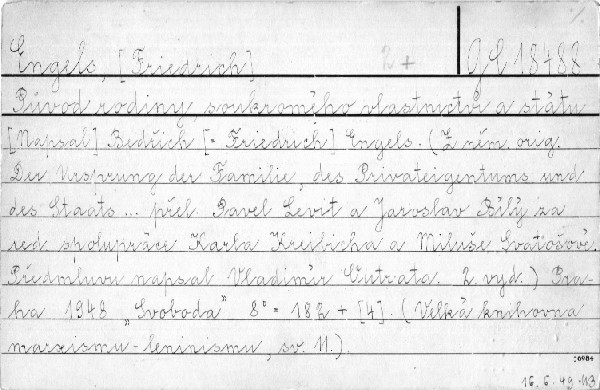 Engels, [Friedrich] 2+ 18488
Původ rodiny, soukromého vlastnictví a státu
[Napsal] Bedřich [= Friedrich] Engels. (Z něm. orig.
Der Ursprung der Familie, des Privateigentums und
des Staats ... přel. Pavel Levit a Jaroslav Bílý za
red. spolupráce Karla Kreibicha a Miluše Svatošové.
Předmluvu napsal Vladimír Čutrata. 2. vyd.) Pra-
ha 1948 „Svoboda" 8° - 182 + [4]. (Velká knihovna
marxismu-leninismu, sv. 11.).
16. 6. 49